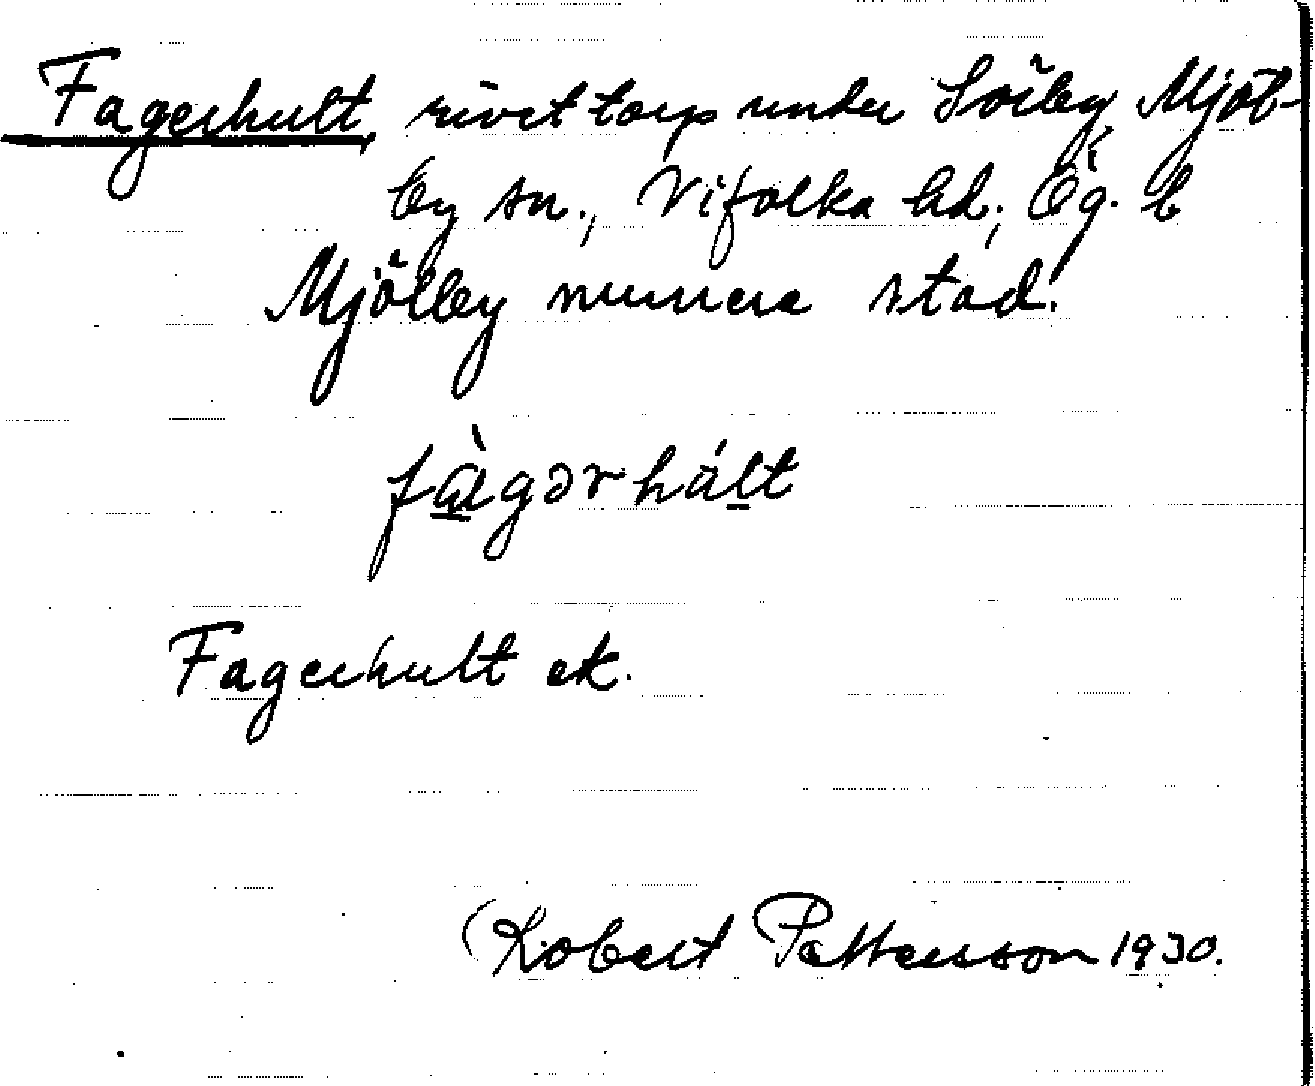 Fagerhult, rivet torp under Sörby, Mjöl-
by sn., Vifolka hd., Ög. l
Mjölby numera stad.
fàgərhált
Fagerhult ek.
Robert Pettersson 1930.